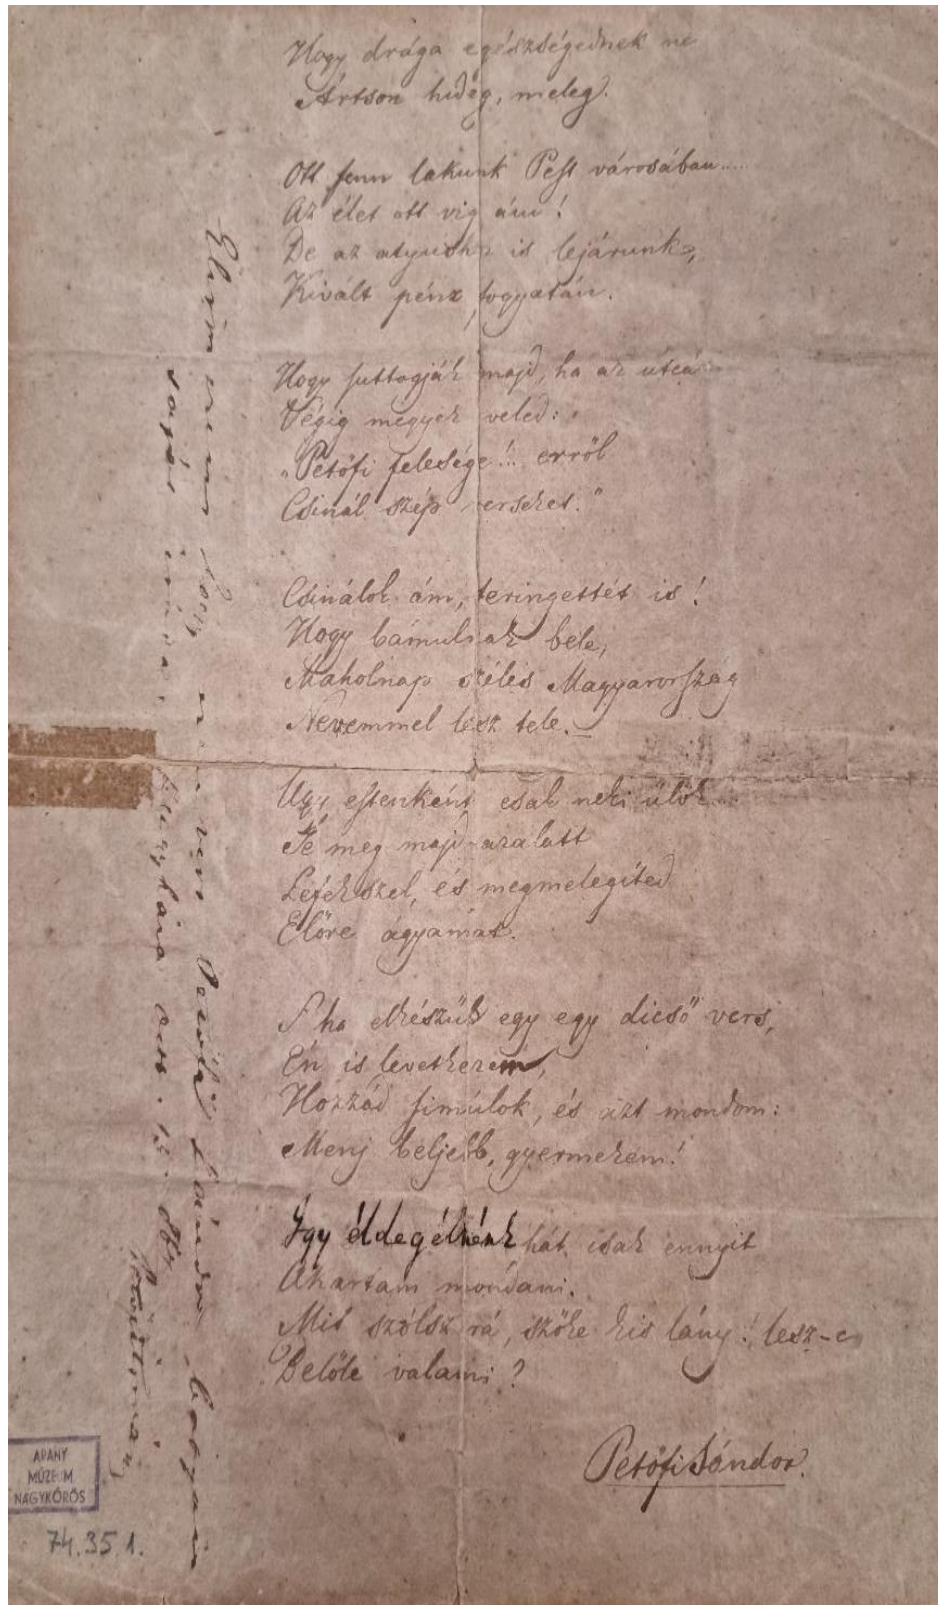 Hogy drága egészségednek ne
Ártson hideg, meleg.
Ott fenn lakunk Pest városában....
Az élet ott vig ám!
De az atyusho is lejárunk,
Kivált pénz fogyatán.
Hogy suttogják majd, ha az útcá
Végig megyek veled:
„Petőfi felesége!.. erről
Csinál szép verseket."
Csinálok ám, teringettét is!
Hogy bámulnak bele,
Maholnap széles Magyarország
Nevemmel lesz tele.–
Ugy estenként csak neki ülök
Te meg majd azalatt
Lefekszel, és megmelegíted
Előre ágyamat.
S ha elkészült egy egy dicső vers,
Én is levetkezem,
Hozzád simúlok, és azt mondom:
Menj beljebb, gyermekem!
Igy éldegélnénk hát, csak ennyit
Akartam mondani.
Mit szólsz rá, szőke kis lány! lesz-e
Belőle valami?
Petőfi Sándor.
Elismerem hogy ezen vers Petőfi Sándor bátyám
saját irása,
ARANY
MÚZEUM
NAGYKŐRÖS
74.35.1.